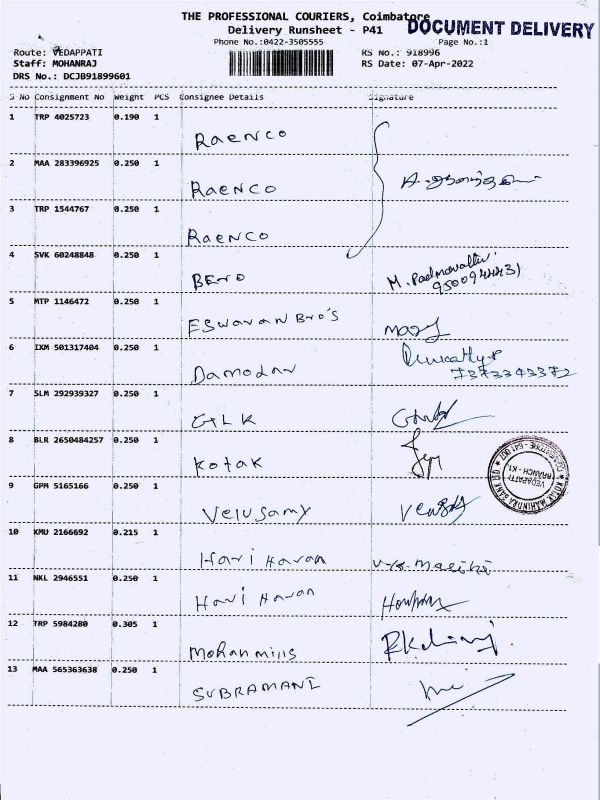 THE PROFESSIONAL COURIERS, Coimbatore
DOCUMENT DELIVERY
Delivery Runsheet - P41
Phone No.:0422-3505555
Page No.:1
Route: VEDAPPATI
RS No.: 918996
Staff: MOHANRAJ
RS Date: 07-Apr-2022
DRS No.: DCJB91899601
S No Consignment No Weight PCS Consignee Details Signature
1 TRP 4025723 0.190 1
RaeNCO
2 MAA 283396925 0.250 1
RaeNCO
3 TRP 1544767 0.250 1
RaeNCO
4 SVK 60248848 0.250 1
M. Padmavathi
9500944431
5 MTP 1146472 0.250 1
ESwaranBro's
mary
6 IXM 501317404 0.250 1
Damodar
7373343372
7 SLM 292939327 0.250 1
GLK
8 BLR 2650484257 0.250 1
Kotak
KOTAK MAHINDRA BANK LTD
COIMBATORE - 641 007
VEDAPATTI
BRANCH - K1
9 GPM 5165166 0.250 1
Velusamy
10 KMU 2166692 0.215 1
Hari Haran
11 NKL 2946551 0.250 1
Hari Haran
12 TRP 5984280 0.305 1
Mohan mills
13 MAA 565363638 0.250 1
SUBRAMANI